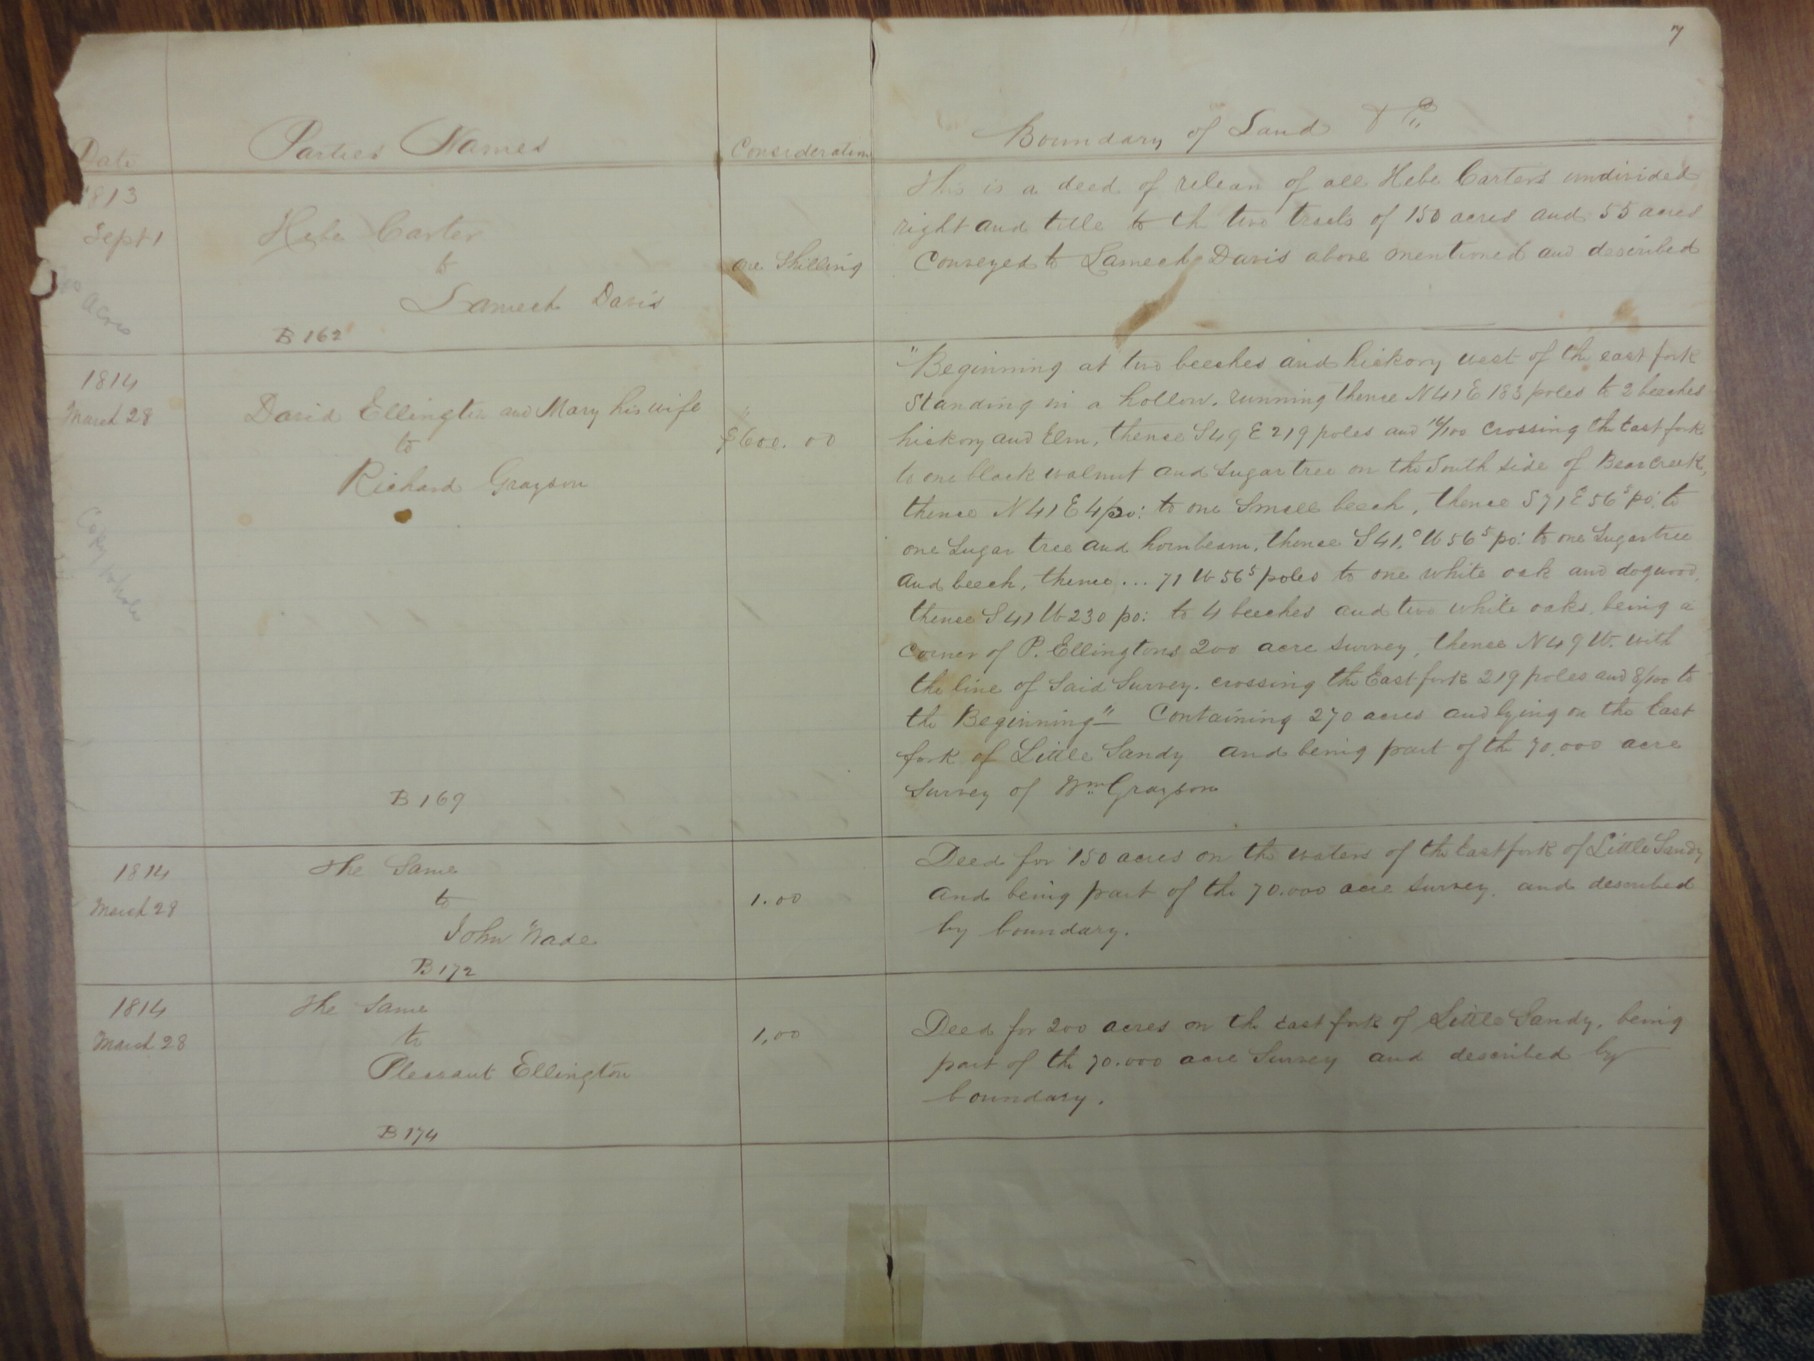 7
Date
Parties Names
Consideration
Boundary of Land & C
1813
Sept 1
acres
Hebe Carter
to
Lameck Davis
B 162
one Shilling
This is a deed of releas of all Hebe Carters undivided
right and title to th two tracts of 150 acres and 55 acres
Conveyed to Lameck Davis above mentioned and described
1814
March 28
Copy whole
David Ellington and Mary his wife
to
Richard Grayson
B 169
$600.00
"Beginning at two beeches and hickory west of the east fork
Standing in a hollow. running thence N 41 E 183 poles to 2 beeches
hickory and Elm, thence S 49 E 219 poles and /100 crossing the East fork
to one black walnut and Sugar tree on the South side of Bear Creek,
thence N 41 E 4 po: to one Small beech, thence S 71 E 56⁵ po: to
one Sugar tree and hornbeam, thence S 41° W 56⁵ po: to one Sugartree
and beech, thence ... 71 W 56⁵ poles to one white oak and dogwood,
thence S 41 W 230 po: to 4 beeches and two white oaks, being a
corner of P. Ellingtons 200 acre Survey, thence N 49 W. with
the line of Said Survey. crossing the East fork 219 poles and 8/100 to
the Beginning" Containing 270 acres and lying on the East
fork of Little Sandy and being part of th 70.000 acre
Survey of Wm Grayson
1814
March 28
The Same
to
John Wade
B 172
1.00
Deed for 150 acres on the waters of the East fork of Little Sandy
and being part of th 70.000 acre Survey. and described
by boundary.
1814
March 28
The Same
to
Pleasant Ellington
B 174
1,00
Deed for 200 acres on the East fork of Little Sandy, being
part of th 70.000 acre Survey and described by
boundary.